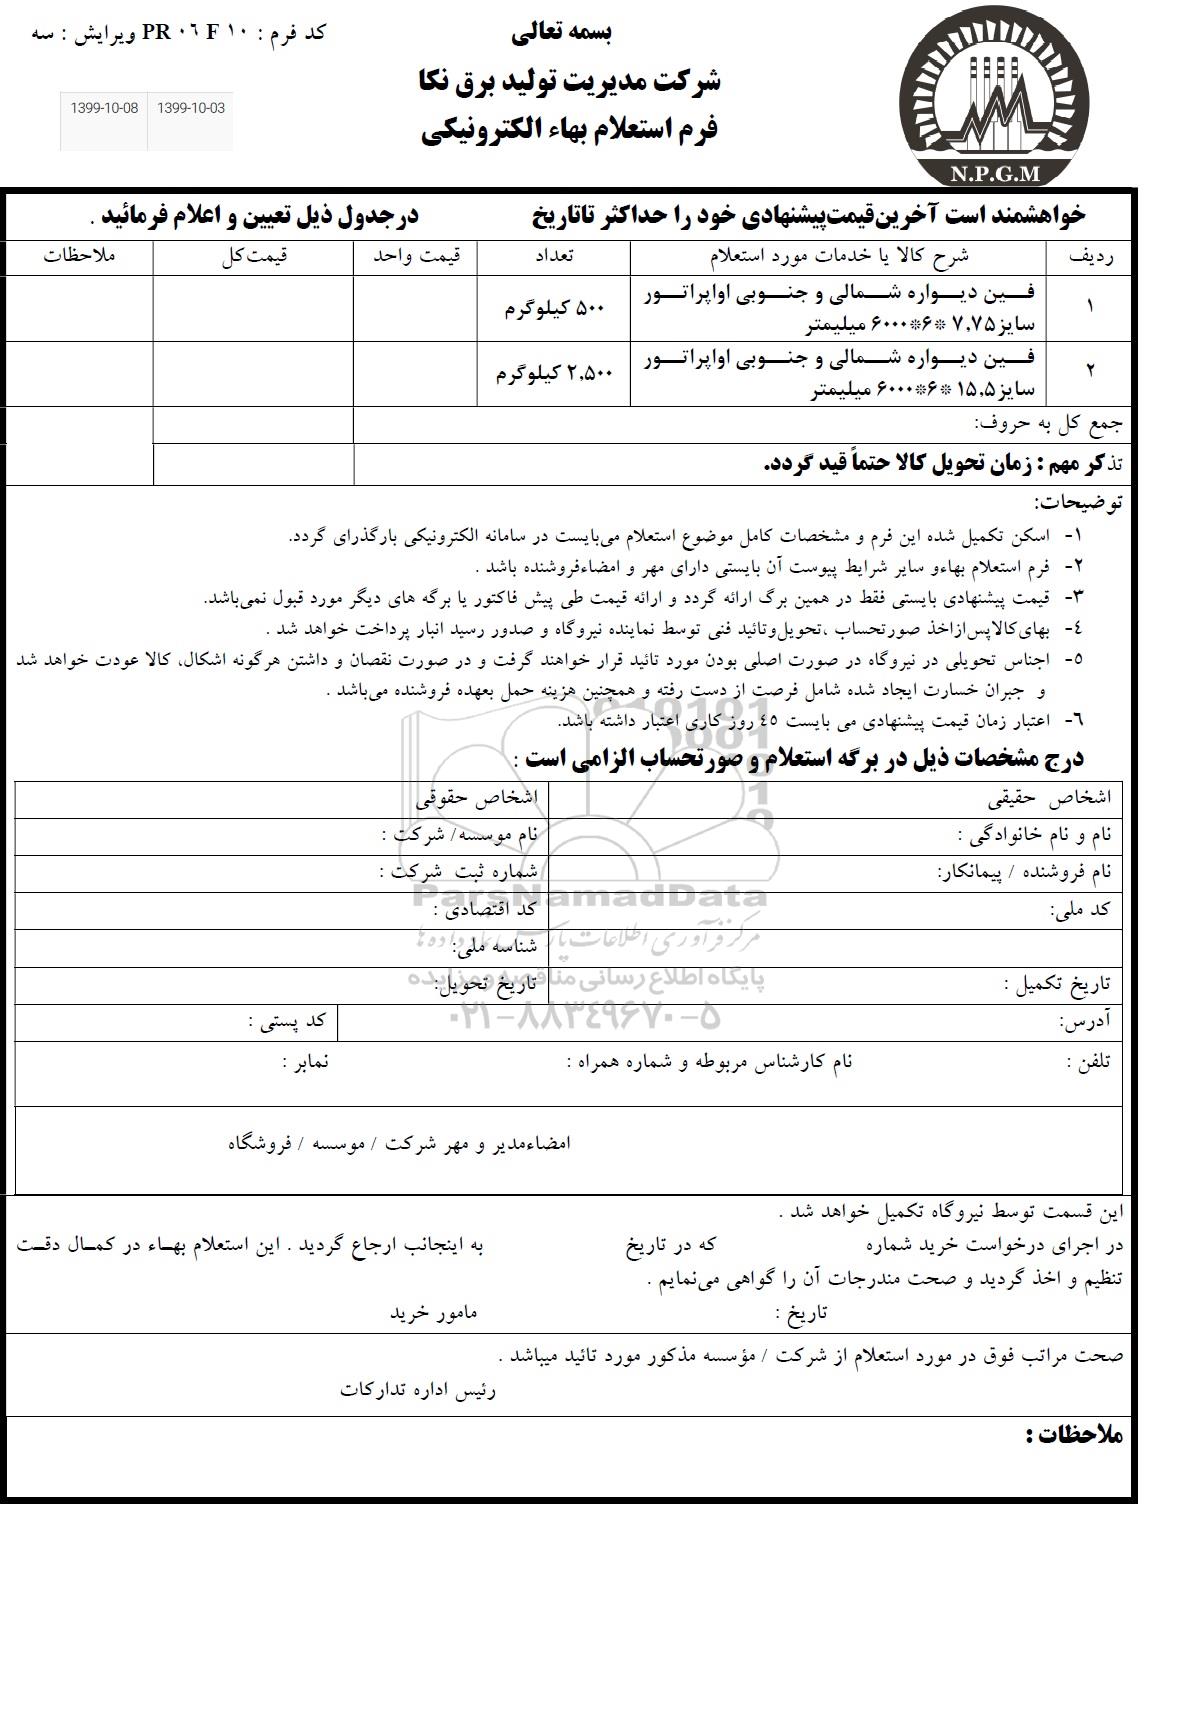 کد فرم : PR ۰۶ F ۱۰ ویرایش : سه
بسمه تعالی
شرکت مدیریت تولید برق نکا
فرم استعلام بهاء الکترونیکی
1399-10-08 1399-10-03
N.P.G.M
خواهشمند است آخرین قیمت پیشنهادی خود را حداکثر تا تاریخ درجدول ذیل تعیین و اعلام فرمائید .
ردیف شرح کالا یا خدمات مورد استعلام تعداد قیمت واحد قیمت کل ملاحظات
۱ فین دیواره شمالی و جنوبی اواپراتور ۵۰۰ کیلوگرم
سایز۷,۷۵ *۶*۶۰۰۰ میلیمتر
۲ فین دیواره شمالی و جنوبی اواپراتور ۲,۵۰۰ کیلوگرم
سایز۱۵,۵ *۶*۶۰۰۰ میلیمتر
جمع کل به حروف:
تذکر مهم : زمان تحویل کالا حتماً قید گردد.
توضیحات:
۱- اسکن تکمیل شده این فرم و مشخصات کامل موضوع استعلام می‌بایست در سامانه الکترونیکی بارگذرای گردد.
۲- فرم استعلام بهاءو سایر شرایط پیوست آن بایستی دارای مهر و امضاءفروشنده باشد .
۳- قیمت پیشنهادی بایستی فقط در همین برگ ارائه گردد و ارائه قیمت طی پیش فاکتور یا برگه های دیگر مورد قبول نمی‌باشد.
۴- بهای‌کالاپس‌ازاخذ صورتحساب ،تحویل‌وتائید فنی توسط نماینده نیروگاه و صدور رسید انبار پرداخت خواهد شد .
۵- اجناس تحویلی در نیروگاه در صورت اصلی بودن مورد تائید قرار خواهند گرفت و در صورت نقصان و داشتن هرگونه اشکال، کالا عودت خواهد شد
و جبران خسارت ایجاد شده شامل فرصت از دست رفته و همچنین هزینه حمل بعهده فروشنده می‌باشد .
۶- اعتبار زمان قیمت پیشنهادی می بایست ۴۵ روز کاری اعتبار داشته باشد.
درج مشخصات ذیل در برگه استعلام و صورتحساب الزامی است :
اشخاص حقیقی اشخاص حقوقی
نام و نام خانوادگی : نام موسسه/ شرکت :
نام فروشنده / پیمانکار: شماره ثبت شرکت :
ParsNamadData
کد ملی: کد اقتصادی :
مرکز فرآوری اطلاعات پارس نماد داده ها
شناسه ملی:
پایگاه اطلاع رسانی مناقصه و مزایده
تاریخ تکمیل : تاریخ تحویل:
۰۲۱-۸۸۳۴۹۶۷۰-۵
آدرس: کد پستی :
تلفن : نام کارشناس مربوطه و شماره همراه : نمابر :
امضاءمدیر و مهر شرکت / موسسه / فروشگاه
این قسمت توسط نیروگاه تکمیل خواهد شد .
در اجرای درخواست خرید شماره که در تاریخ به اینجانب ارجاع گردید . این استعلام بهاء در کمال دقت
تنظیم و اخذ گردید و صحت مندرجات آن را گواهی می‌نمایم .
تاریخ : مامور خرید
صحت مراتب فوق در مورد استعلام از شرکت / مؤسسه مذکور مورد تائید میباشد .
رئیس اداره تدارکات
ملاحظات :